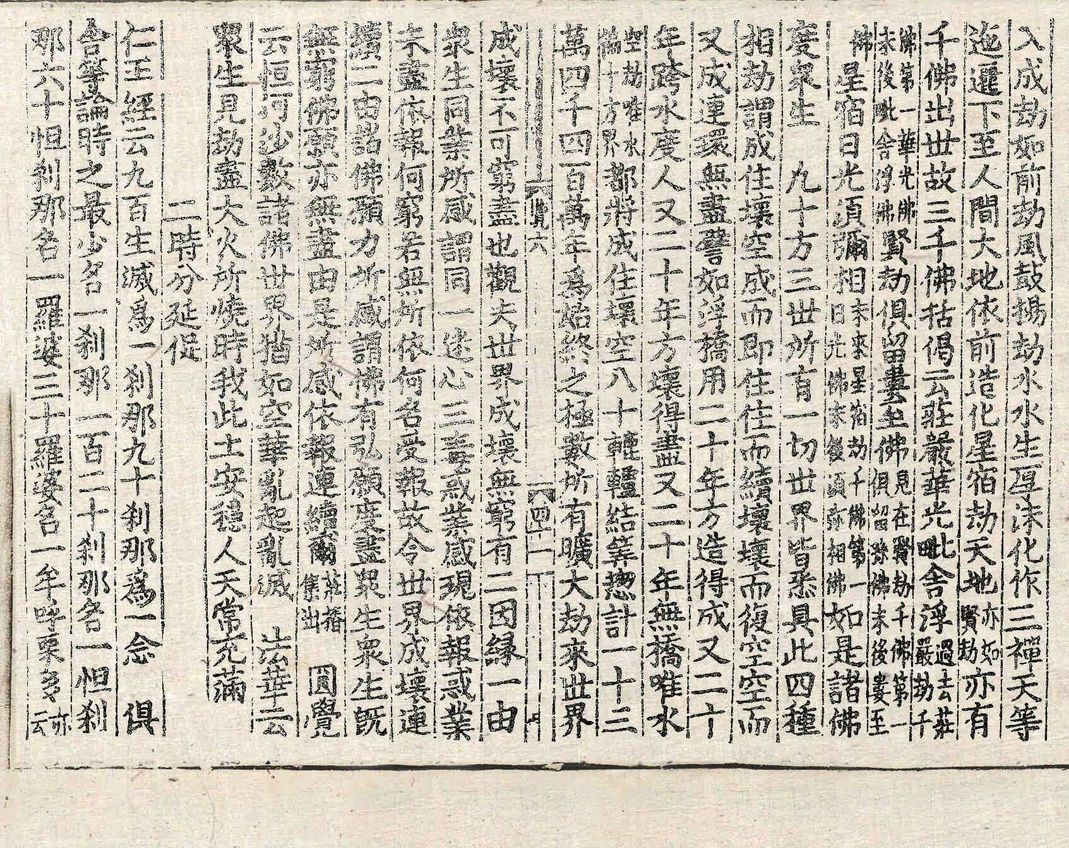 入成劫如前劫風鼓揚劫水水生厚沫化作三禪天等
迤邐下至人間大地依前造化星宿劫天地亦如賢劫亦有
千佛出世故三千佛括偈云莊嚴華光毗舍浮過去莊嚴劫千
佛第一華光佛末後毗舍浮佛賢劫俱留婁至佛見在賢劫千佛第一俱留孫佛末後婁至
佛星宿日光須彌相未來星宿劫千佛第一日光佛末後須弥相佛如是諸佛
度衆生 九十方三世所有一切世界皆悉具此四種
相劫謂成住壞空成而即住住而續壞壞而復空空而
又成連環無盡譬如浮橋用二十年方造得成又二十
年跨水度人又二十年方壞得盡又二十年無橋唯水
空劫唯水徧十方界都將成住壞空八十轆轤結筭揔計一十三
萬四千四百萬年爲始終之極數所有曠大劫來世界
覽六 四十一
成壞不可窮盡也觀夫世界成壞無窮有二因縁一由
衆生同業所感謂同一迷心三毒惑業感現依報惑業
未盡依報何窮若無所依何名受報故令世界成壞連
續二由諸佛願力所感謂佛有弘願度盡衆生衆生既
無窮佛願亦無盡由是所感依報連續爾莊播集出 圓覺
云恒河沙數諸佛世界猶如空華亂起亂滅 法華云
衆生見劫盡大火所燒時我此土安穩人天常充滿
二時分延促
仁王經云九百生滅爲一刹那九十刹那爲一念 俱
舍等論時之最少名一刹那一百二十刹那名一怛刹
那六十怛刹那名一羅婆三十羅婆名一牟呼栗多亦云